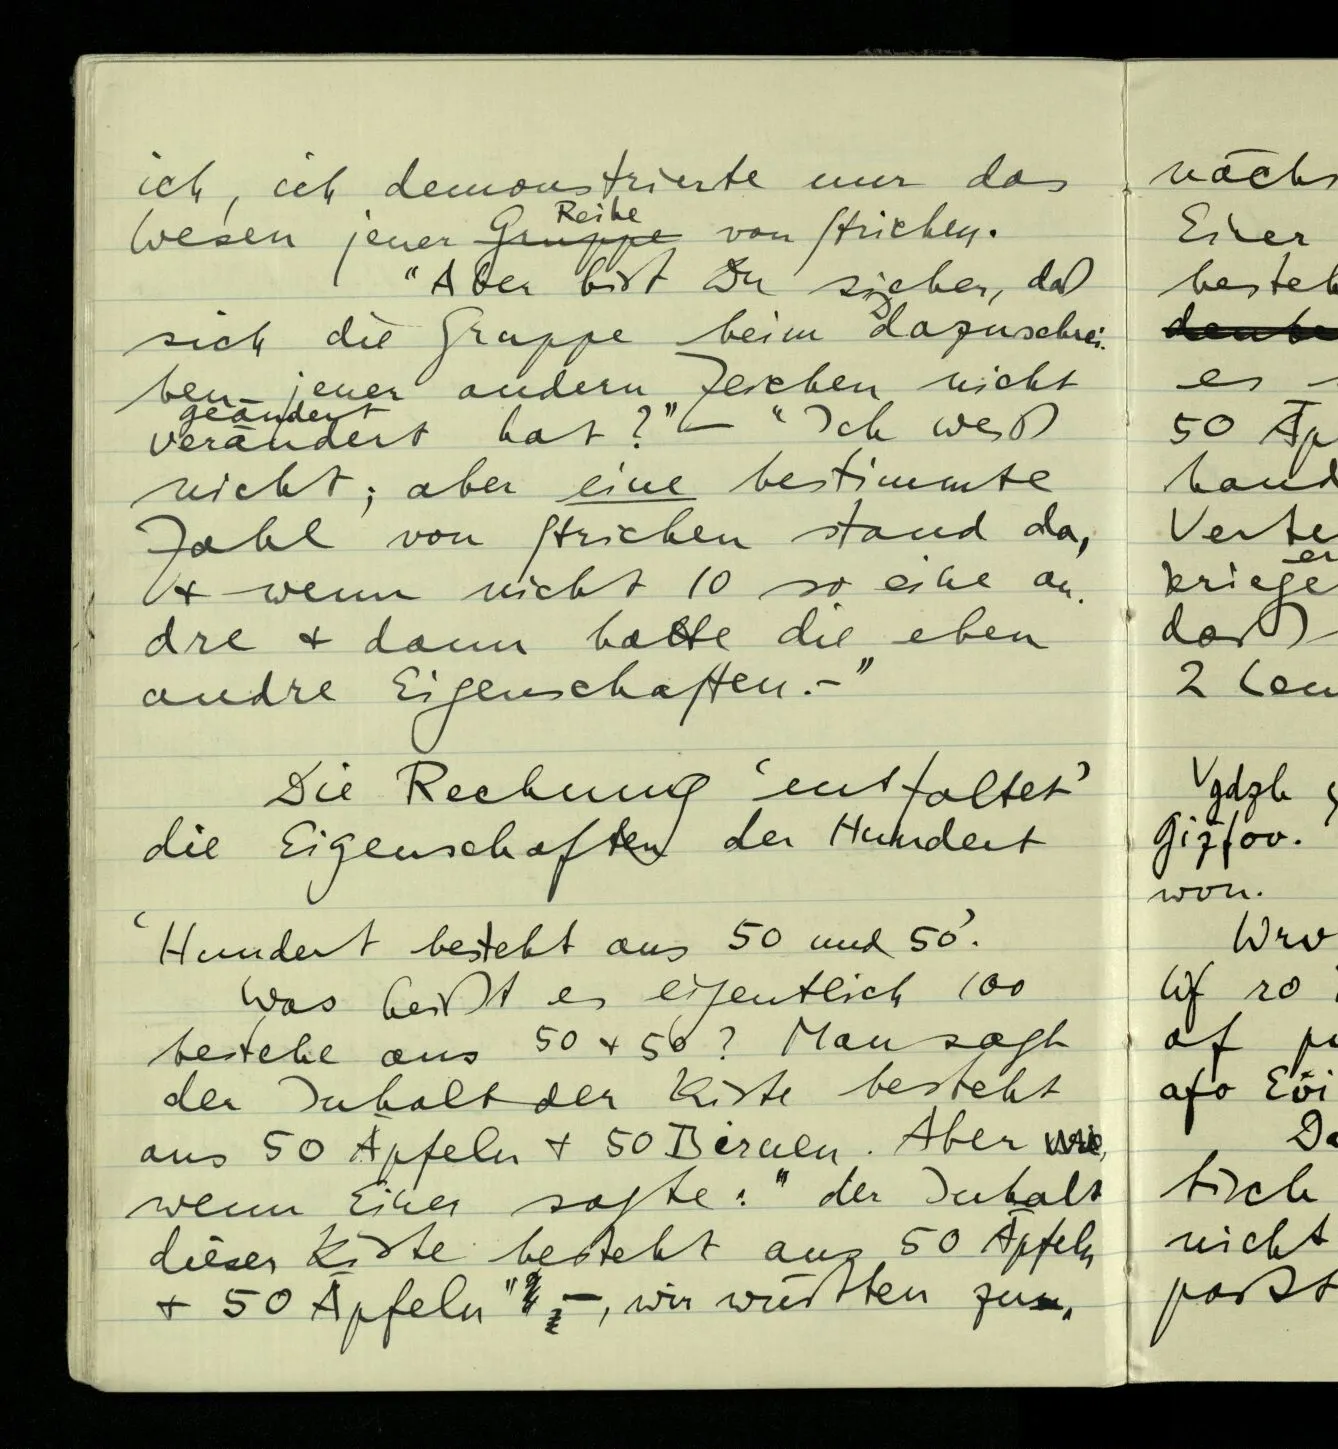 ich, ich demonstrierte nur das
Wesen jener Gruppe Reihe von Strichen.
"Aber bist Du sicher, daß
sich die Gruppe beim Dazuschrei-
ben jener andern Zeichen nicht
geändert
verändert hat?" — "Ich weiß
nicht; aber eine bestimmte
Zahl von Strichen stand da,
& wenn nicht 10 so eine an-
dre & dann hatte die eben
andre Eigenschaften. –"
Die Rechnung 'entfaltet'
die Eigenschaften der Hundert
'Hundert besteht aus 50 und 50'.
Was heißt es eigentlich 100
bestehe aus 50 + 50? Man sagt
der Inhalt der Kiste besteht
aus 50 Äpfeln & 50 Birnen. Aber
wenn Einer sagte: "der Inhalt
dieser Kiste besteht aus 50 Äpfeln
& 50 Äpfeln" –, wir wüßten zu-
nächs
Einer
besteh
es
50 Äp
hand
Verte
kriege
daß
2 Len
Vgdzh
Gizfov.
won.
Wrv
Wf ro
of pu
afo Eöi
Da
tisch
nicht
paßt